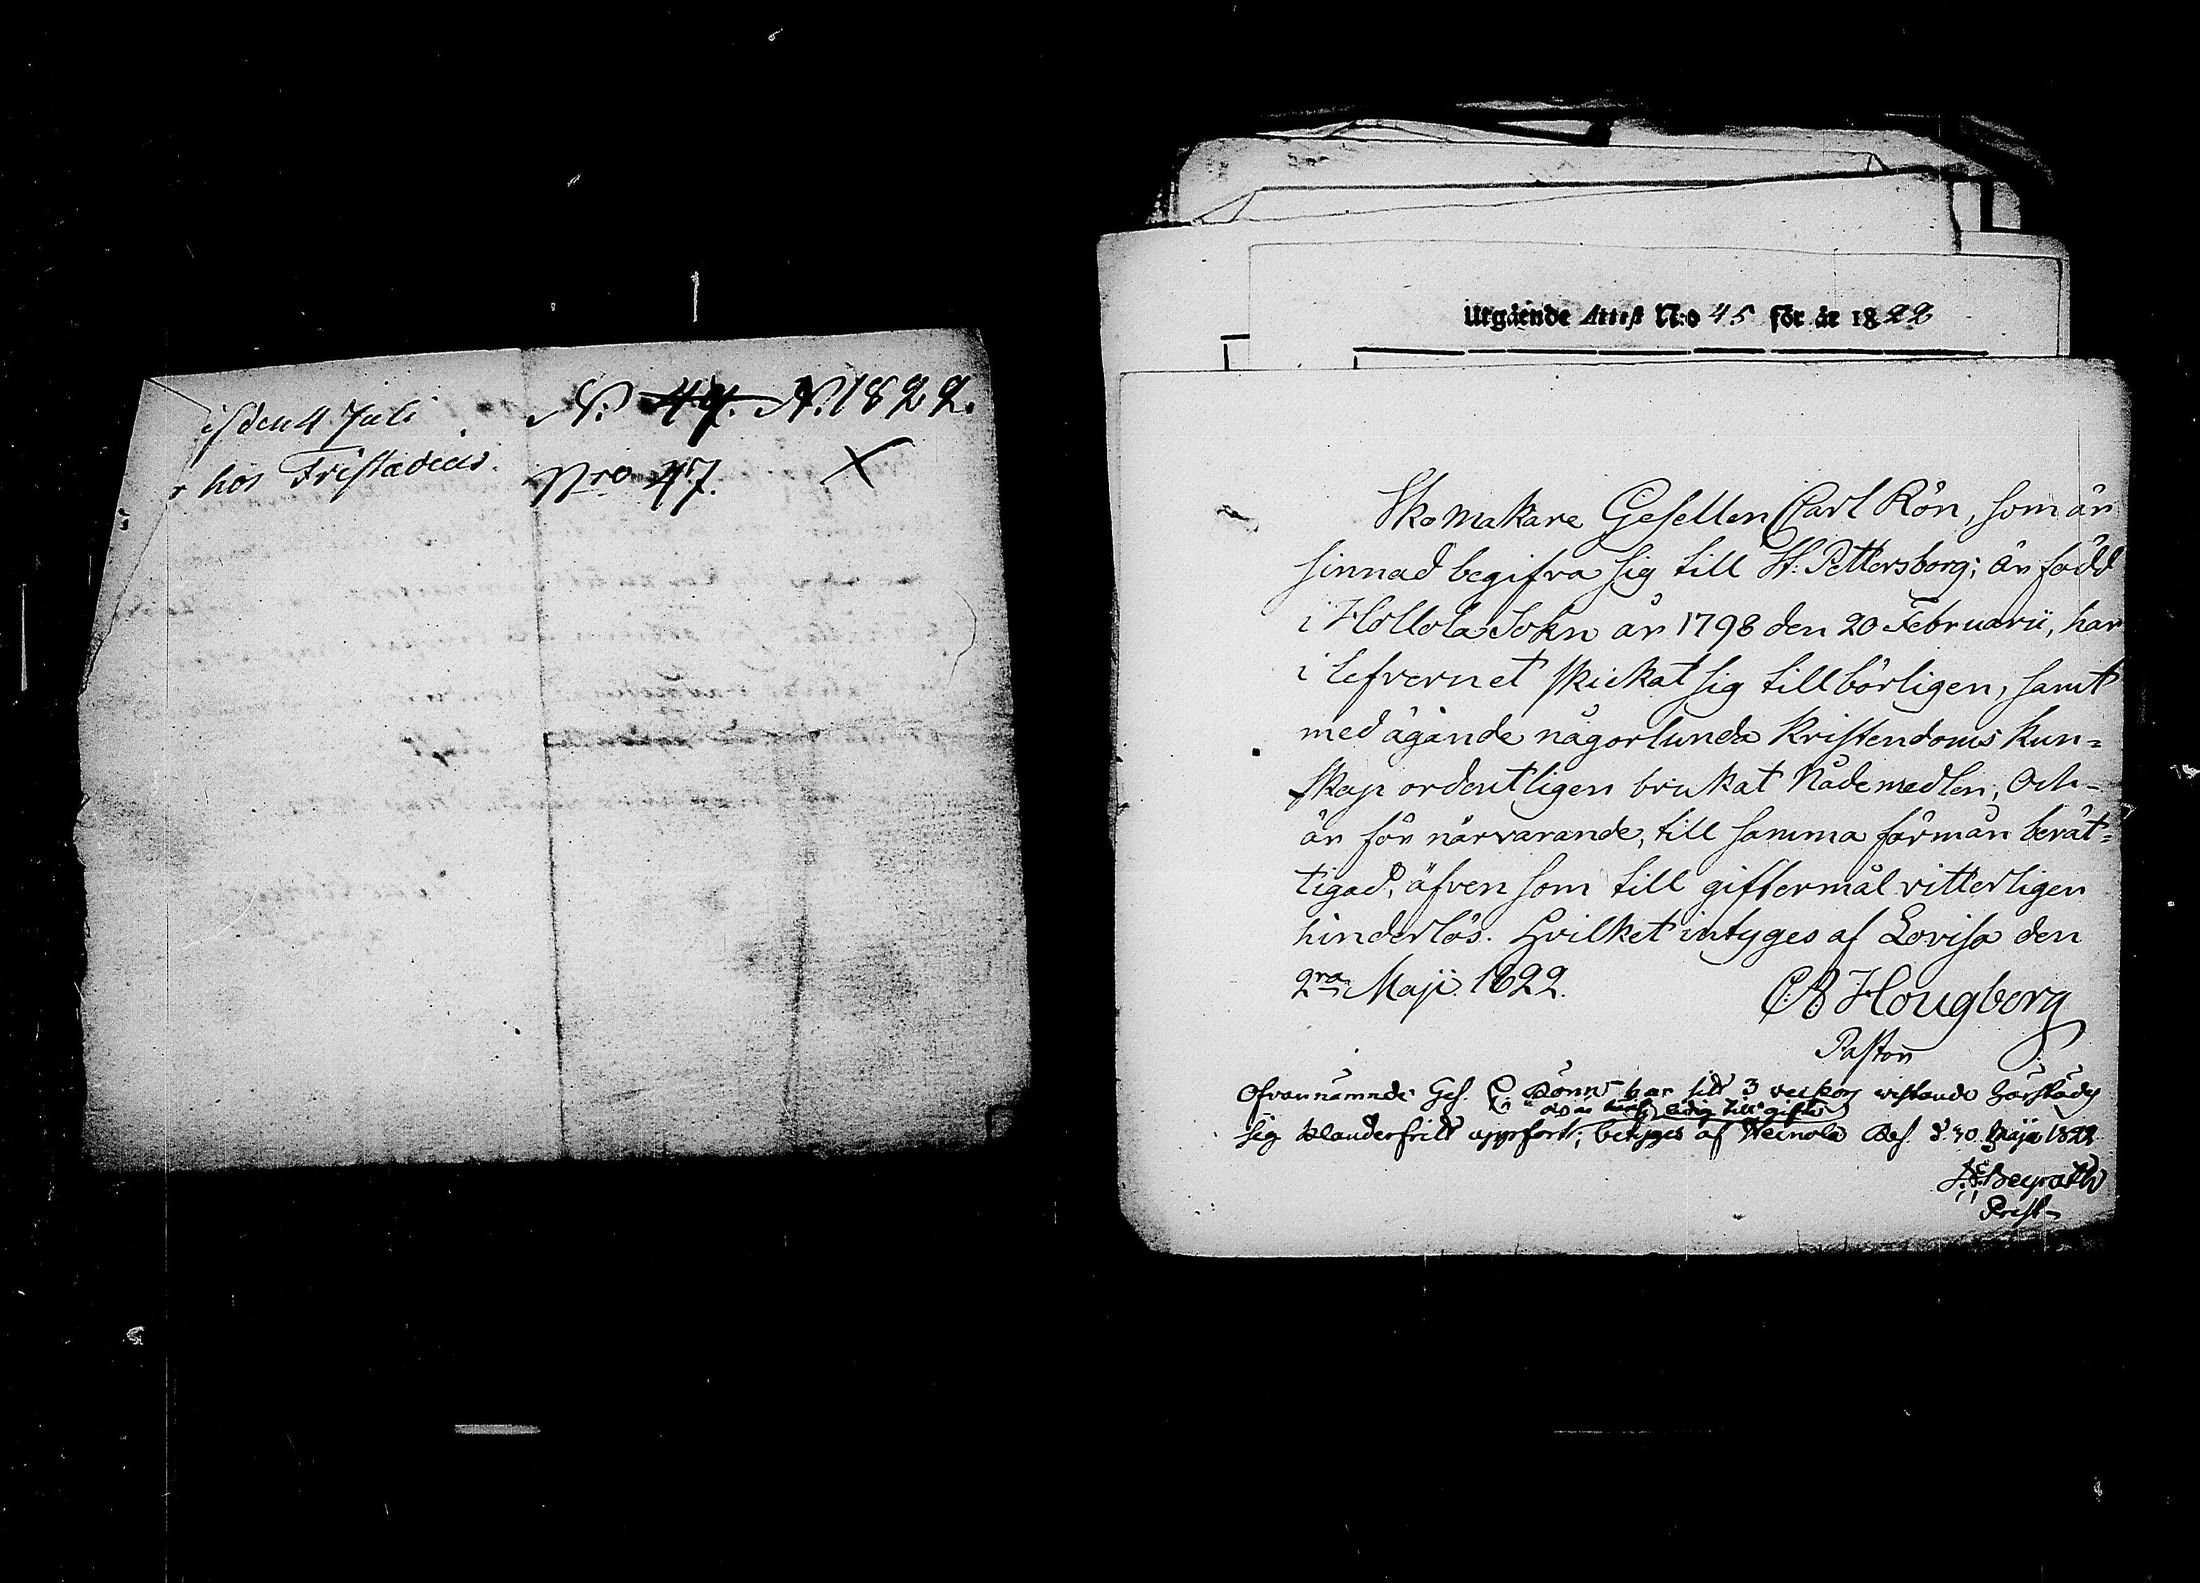 den 4 Juli
hos Fristadius.
N. 47. N. 1822.
Nro 47. X
Utgående Attest N:o 45 för år 1822
Skomakare Gesellen Carl Rön, som är
sinnad begifva sig till St: Pettersborg; är född
i Hollola Sokn år 1798 den 20 Februarii, har
i lefvernet skickat sig tillbörligen, samt
med ägande någorlunda Kristendoms Kun=
skap ordentligen brukat Nådemedlen, Och
är för närvarande, till samma förmån berät=
tigad, äfven som till giftermål vitterligen
hinderlös. Hvilket intyges af Lovisa den
2ra Maji 1822.
C A Hougberg
Pastor
Ofvannämnde Ges. C Rönn har sitt 3 veckors vistande härstädes
och är ledig till gifte
sig klanderfritt uppfört; betyges af Heinola d. 30 Maji 1822
Beyrath
Prest